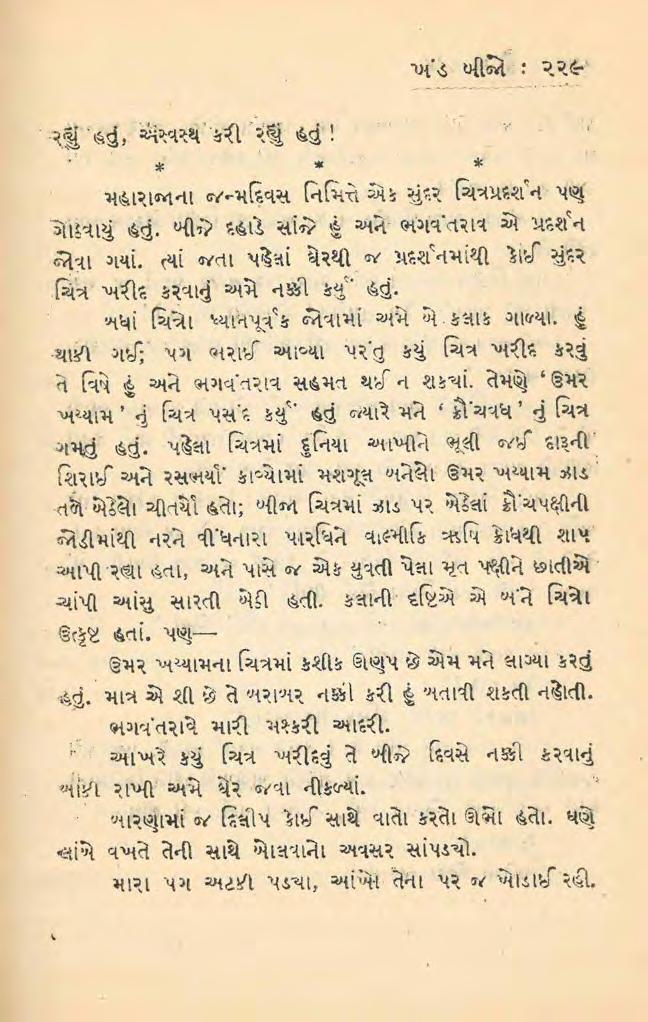 ખંડ બીજો : ૨૨૯
રહ્યું હતું, અસ્વસ્થ કરી રહ્યું હતું !
* * *
મહારાજાના જન્મદિવસ નિમિત્તે એક સુંદર ચિત્રપ્રદર્શન પણ
ગોઠવાયું હતું. બીજે દહાડે સાંજે હું અને ભગવંતરાવ એ પ્રદર્શન
જોવા ગયાં. ત્યાં જતા પહેલાં ઘેરથી જ પ્રદર્શનમાંથી કોઈ સુંદર
ચિત્ર ખરીદ કરવાનું અમે નક્કી કર્યું હતું.
બધાં ચિત્રો ધ્યાનપૂર્વક જોવામાં અમે બે કલાક ગાળ્યા. હું
થાકી ગઈ; પગ ભરાઈ આવ્યા પરંતુ કયું ચિત્ર ખરીદ કરવું
તે વિષે હું અને ભગવંતરાવ સહમત થઈ ન શક્યાં. તેમણે ‘ ઉમર
ખય્યામ ’ નું ચિત્ર પસંદ કર્યું હતું જ્યારે મને ‘ ક્રૌંચવધ ’ નું ચિત્ર
ગમતું હતું. પહેલા ચિત્રમાં દુનિયા આખીને ભૂલી જઈ દારૂની
શિરાઈ અને રસભર્યાં કાવ્યોમાં મશગૂલ બનેલો ઉમર ખય્યામ ઝાડ
તળે બેઠેલો ચીતર્યો હતો; બીજા ચિત્રમાં ઝાડ પર બેઠેલાં ક્રૌંચપક્ષીની
જોડીમાંથી નરને વીંધનારા પારધિને વાલ્મીકિ ઋષિ ક્રોધથી શાપ
આપી રહ્યા હતા, અને પાસે જ એક યુવતી પેલા મૃત પક્ષીને છાતીએ
ચાંપી આંસુ સારતી બેઠી હતી. કલાની દૃષ્ટિએ એ બંને ચિત્રો
ઉત્કૃષ્ટ હતાં. પણ—
ઉમર ખય્યામના ચિત્રમાં કશીક ઊણપ છે એમ મને લાગ્યા કરતું
હતું. માત્ર એ શી છે તે બરાબર નક્કી કરી હું બતાવી શકતી નહોતી.
ભગવંતરાવે મારી મશ્કરી આદરી.
આખરે કયું ચિત્ર ખરીદવું તે બીજે દિવસે નક્કી કરવાનું
બાકી રાખી અમે ઘેર જવા નીકળ્યાં.
બારણામાં જ દિલીપ કોઈ સાથે વાતો કરતો ઊભો હતો. ઘણે
લાંબે વખતે તેની સાથે બોલવાનો અવસર સાંપડચો.
મારા પગ અટકી પડચા, આંખો તેના પર જ ખોડાઈ રહી.